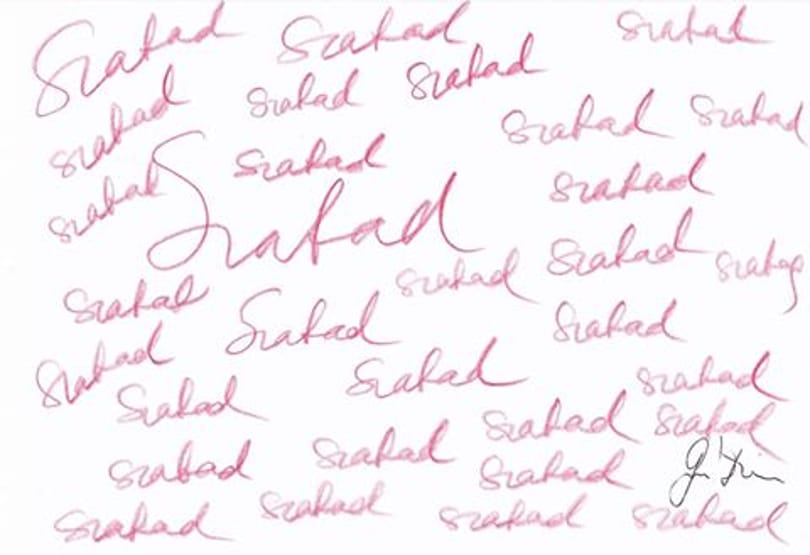 Szabad Szabad Szabad
szabad szabad szabad
szabad szabad
szabad szabad szabad
Szabad
szabad szabad szabad
szabad Szabad szabad
szabad szabad szabad
szabad szabad szabad
szabad szabad szabad
szabad szabad szabad szabad